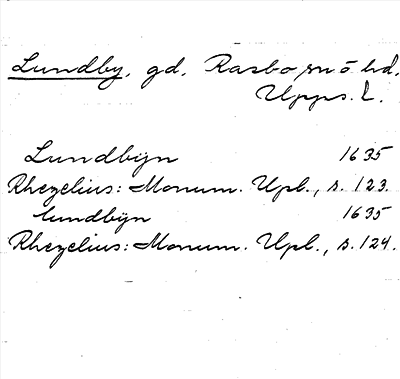 Lundby, gd, Rasbo sn o hd,
Upps. l.
Lundbÿn 1635
Rhezelius: Monum. Upl., s. 123.
lundbÿn 1635
Rhezelius: Monum. Upl., s. 124.